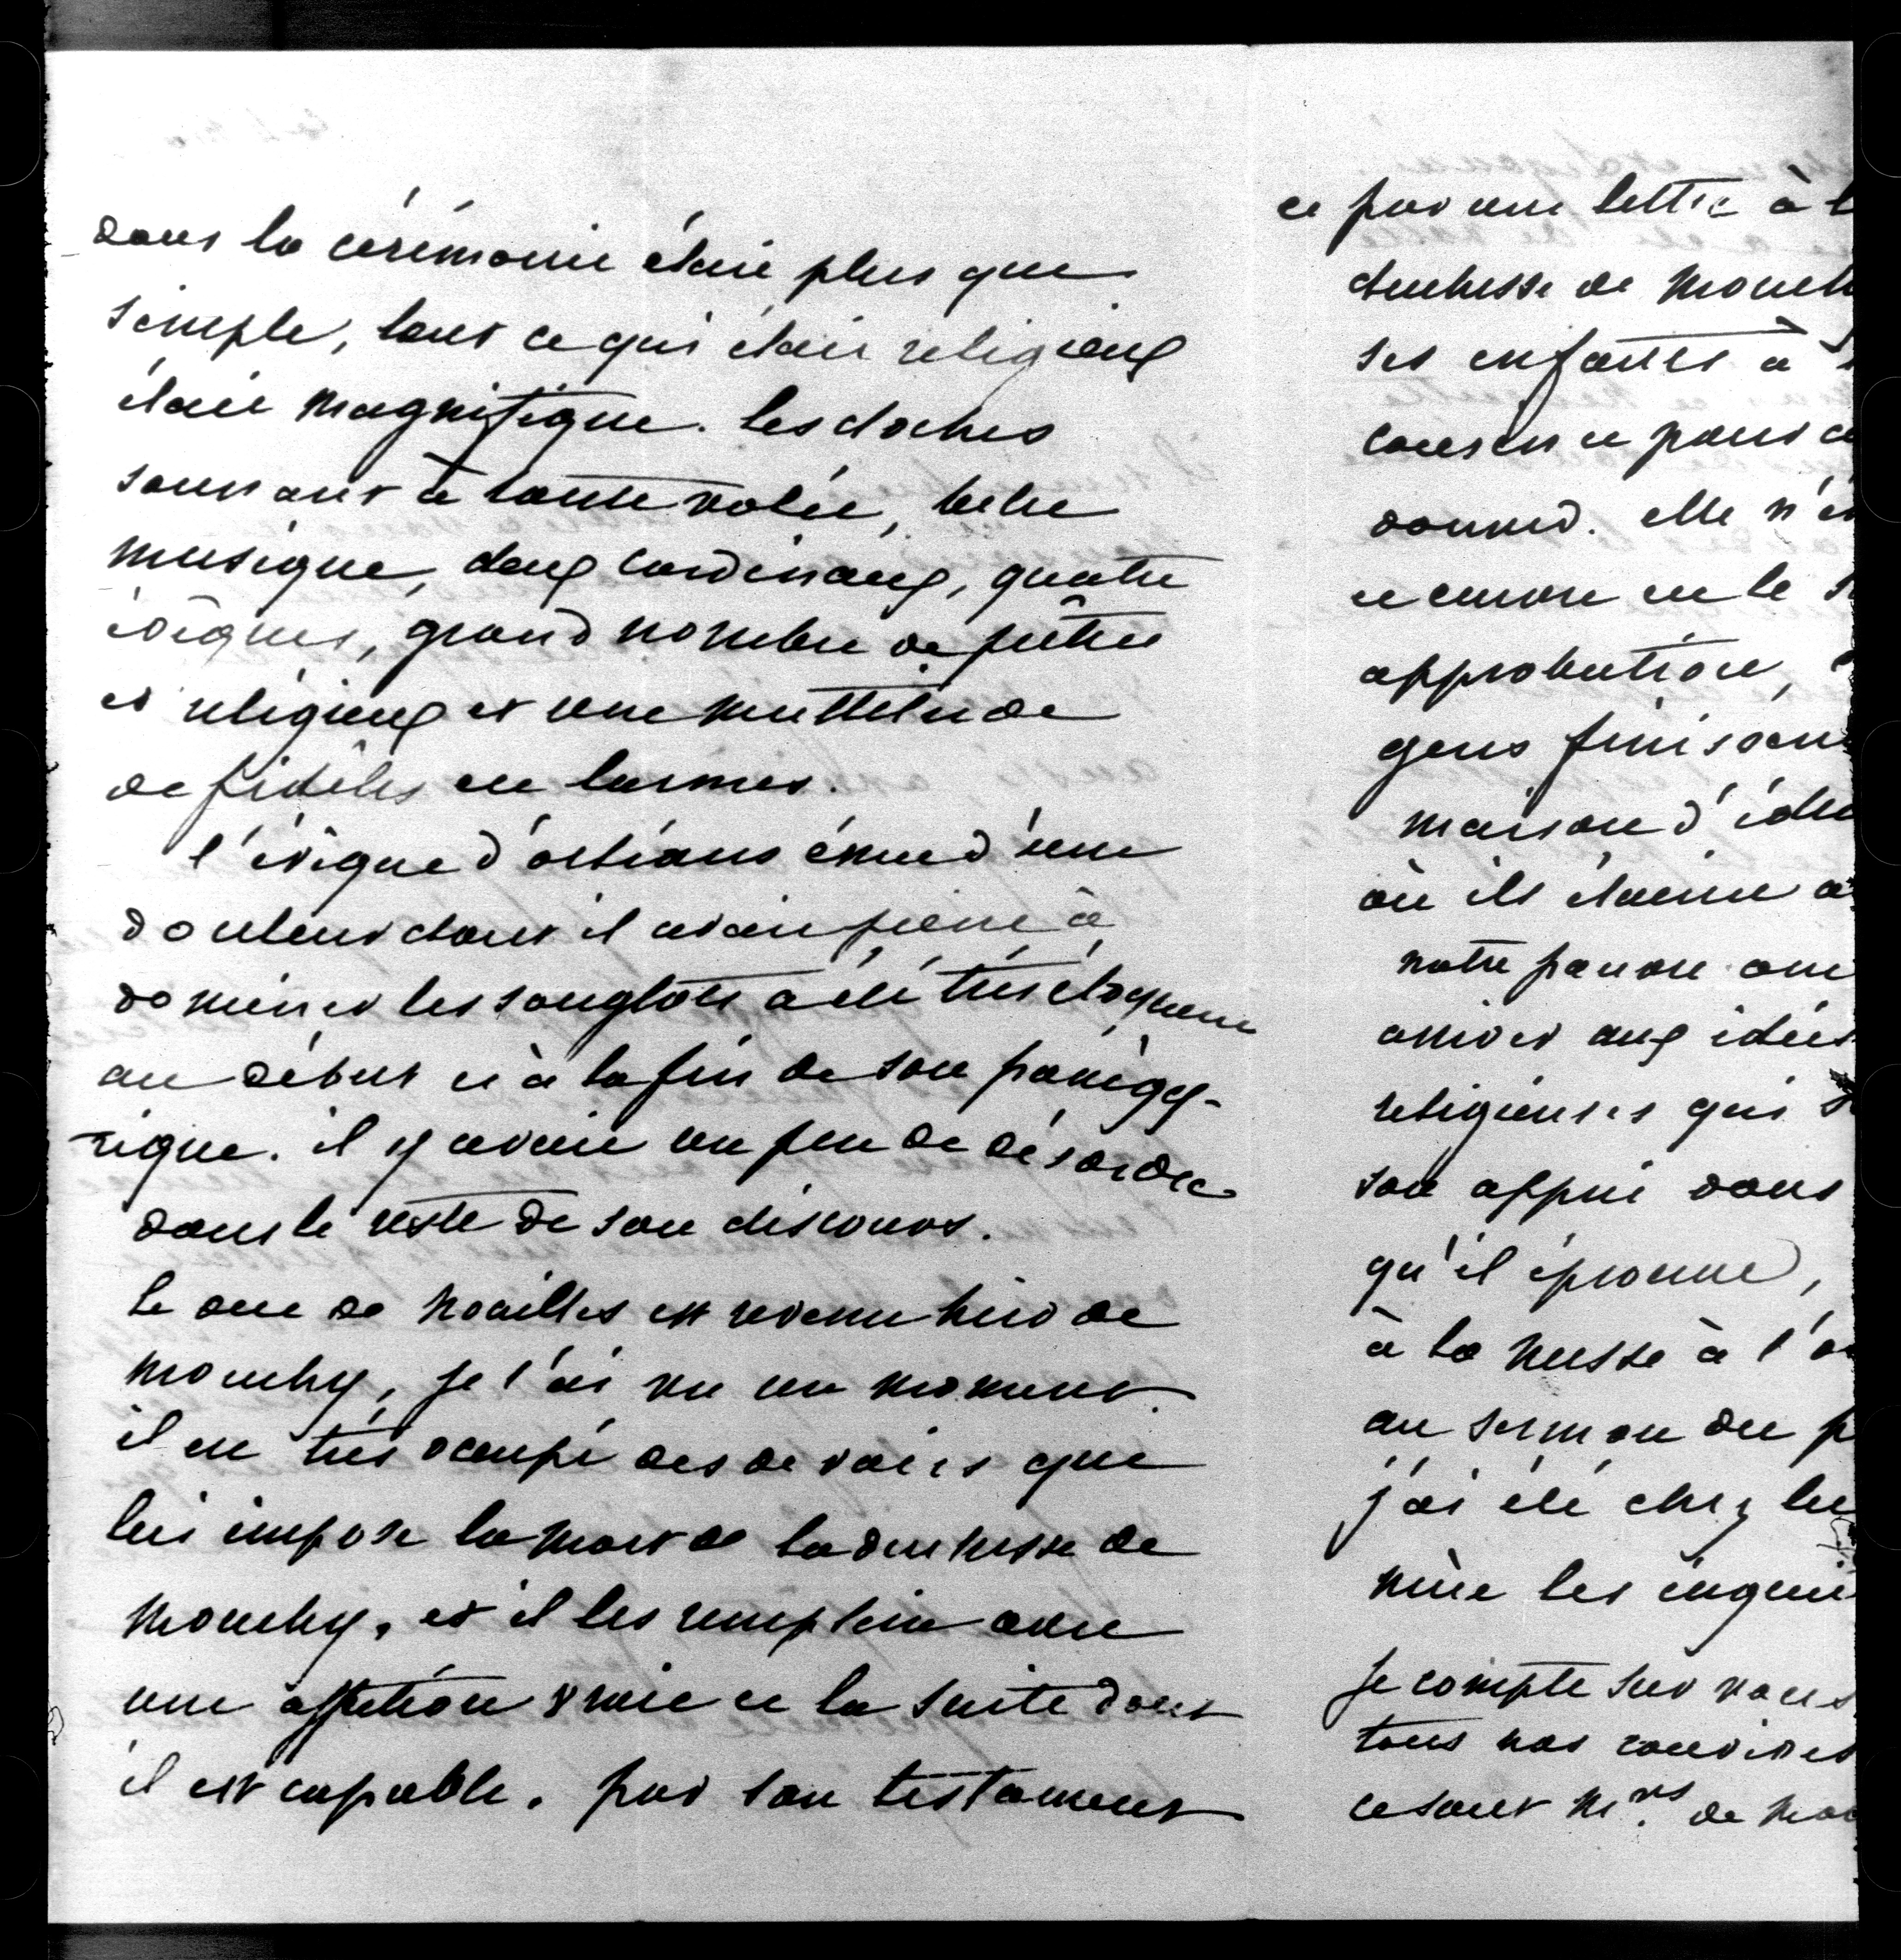 dans la cérémonie était plus que
simple, tout ce qui était religieux
était magnifique. les cloches
sonnant à toute volée, belle
musique, deux cardinaux, quatre
évêques, grand nombre de prêtres
et religieux et une multitude
de fidèles en larmes.
l'évêque d'orléans ému d'une
douleur dont il avait peine à
dominer les sanglots a été très éloquent
au début et à la fin de son panégy-
rique. il y avait un peu de désordre
dans le reste de son discours.
le duc de Noailles est revenu hier de
Mouchy, je l'ai vu un moment.
il est très occupé des devoirs que
lui impose la mort de la duchesse de
Mouchy, et il les remplit avec
une affection vraie et la suite dont
il est capable. par son testament
et par une lettre à l
duchesse de Mouch
ses enfants à
conscience pour ce
donné. elle n'
et encore en le
approbation,
gens finissent
maison d'édu
où ils étaient
notre pauvre ami
arriver aux idées
religieuses qui
son appui dans
qu'il éprouve,
à la messe à l'
au sermon du p
j'ai été chez lu
mène les
je compte sur vous
tous nos convives
ce sont Mrs. de